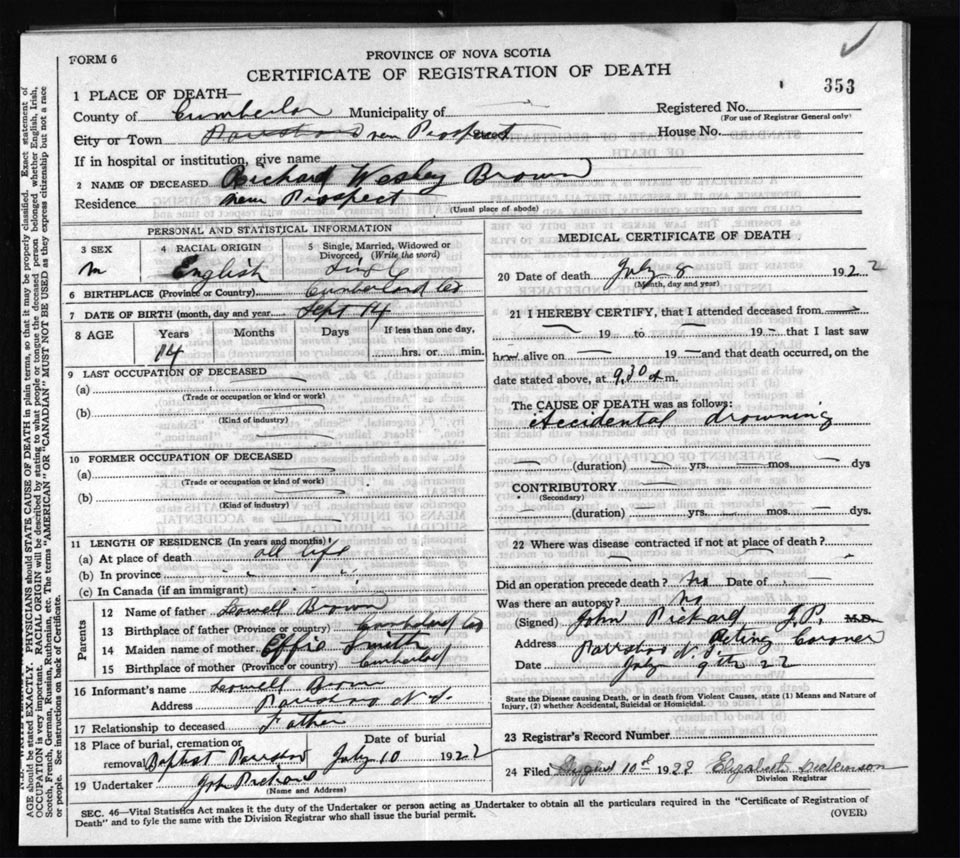 FORM 6
PROVINCE OF NOVA SCOTIA
CERTIFICATE OF REGISTRATION OF DEATH
353
1 PLACE OF DEATH—
County of Cumberlan Municipality of
Registered No.
(For use of Registrar General only)
City or Town Parrsboro near Prospect
House No.
If in hospital or institution, give name
2 NAME OF DECEASED Richard Wesley Brown
Residence near Prospect
(Usual place of abode)
PERSONAL AND STATISTICAL INFORMATION
3 SEX 4 RACIAL ORIGIN 5 Single, Married, Widowed or Divorced, (Write the word)
m English Single
6 BIRTHPLACE (Province or Country) Cumberland Co
7 DATE OF BIRTH (month, day and year) Sept 14
8 AGE Years Months Days If less than one day,
14 hrs. or min.
9 LAST OCCUPATION OF DECEASED
(a)
(Trade or occupation or kind or work)
(b)
(Kind of industry)
10 FORMER OCCUPATION OF DECEASED
(a)
(Trade or occupation or kind of work)
(b)
(Kind of industry)
11 LENGTH OF RESIDENCE (In years and months)
(a) At place of death all life
(b) In province " "
(c) In Canada (if an immigrant)
Parents
12 Name of father Lowell Brown
13 Birthplace of father (Province or country) Cumberland Co
14 Maiden name of mother Effie Smith
15 Birthplace of mother (Province or country) Cumberland
16 Informant's name Lowell Brown
Address Parrsboro N.S.
17 Relationship to deceased Father
18 Place of burial, cremation or removal Baptist Parrsboro
Date of burial July 10 1922
19 Undertaker John Rickard
(Name and Address)
MEDICAL CERTIFICATE OF DEATH
20 Date of death July 8 1922
(Month, day and year)
21 I HEREBY CERTIFY, that I attended deceased from
19 to 19 that I last saw
h alive on 19 and that death occurred, on the
date stated above, at 9.30 m.
The CAUSE OF DEATH was as follows:
Accidental drowning
(duration) yrs. mos. dys
CONTRIBUTORY
(Secondary)
(duration) yrs. mos. dys.
22 Where was disease contracted if not at place of death?
Did an operation precede death? No Date of
Was there an autopsy? No
(Signed) John Rickard J.P. M.D.
Acting Coroner
Address Parrsboro N.S.
Date July 9th 22
State the Disease causing Death, or in death from Violent Causes, state (1) Means and Nature of
Injury, (2) whether Accidental, Suicidal or Homicidal.
23 Registrar's Record Number
24 Filed August 10th 1922 Elizabeth Dickinson
Division Registrar
SEC. 46—Vital Statistics Act makes it the duty of the Undertaker or person acting as Undertaker to obtain all the particulars required in the "Certificate of Registration of
Death" and to fyle the same with the Division Registrar who shall issue the burial permit.
(OVER)
AGE should be stated EXACTLY. PHYSICIANS should STATE CAUSE OF DEATH in plain terms, so that it may be properly classified. Exact statement of
OCCUPATION is very important. RACIAL ORIGIN will be described by stating to what people or tongue the deceased person belonged whether English, Irish,
Scotch, French, German, Russian, Ruthenian, etc. The terms "AMERICAN" OR "CANADIAN" MUST NOT BE USED as they express citizenship but not a race
or people. See instructions on back of Certificate.